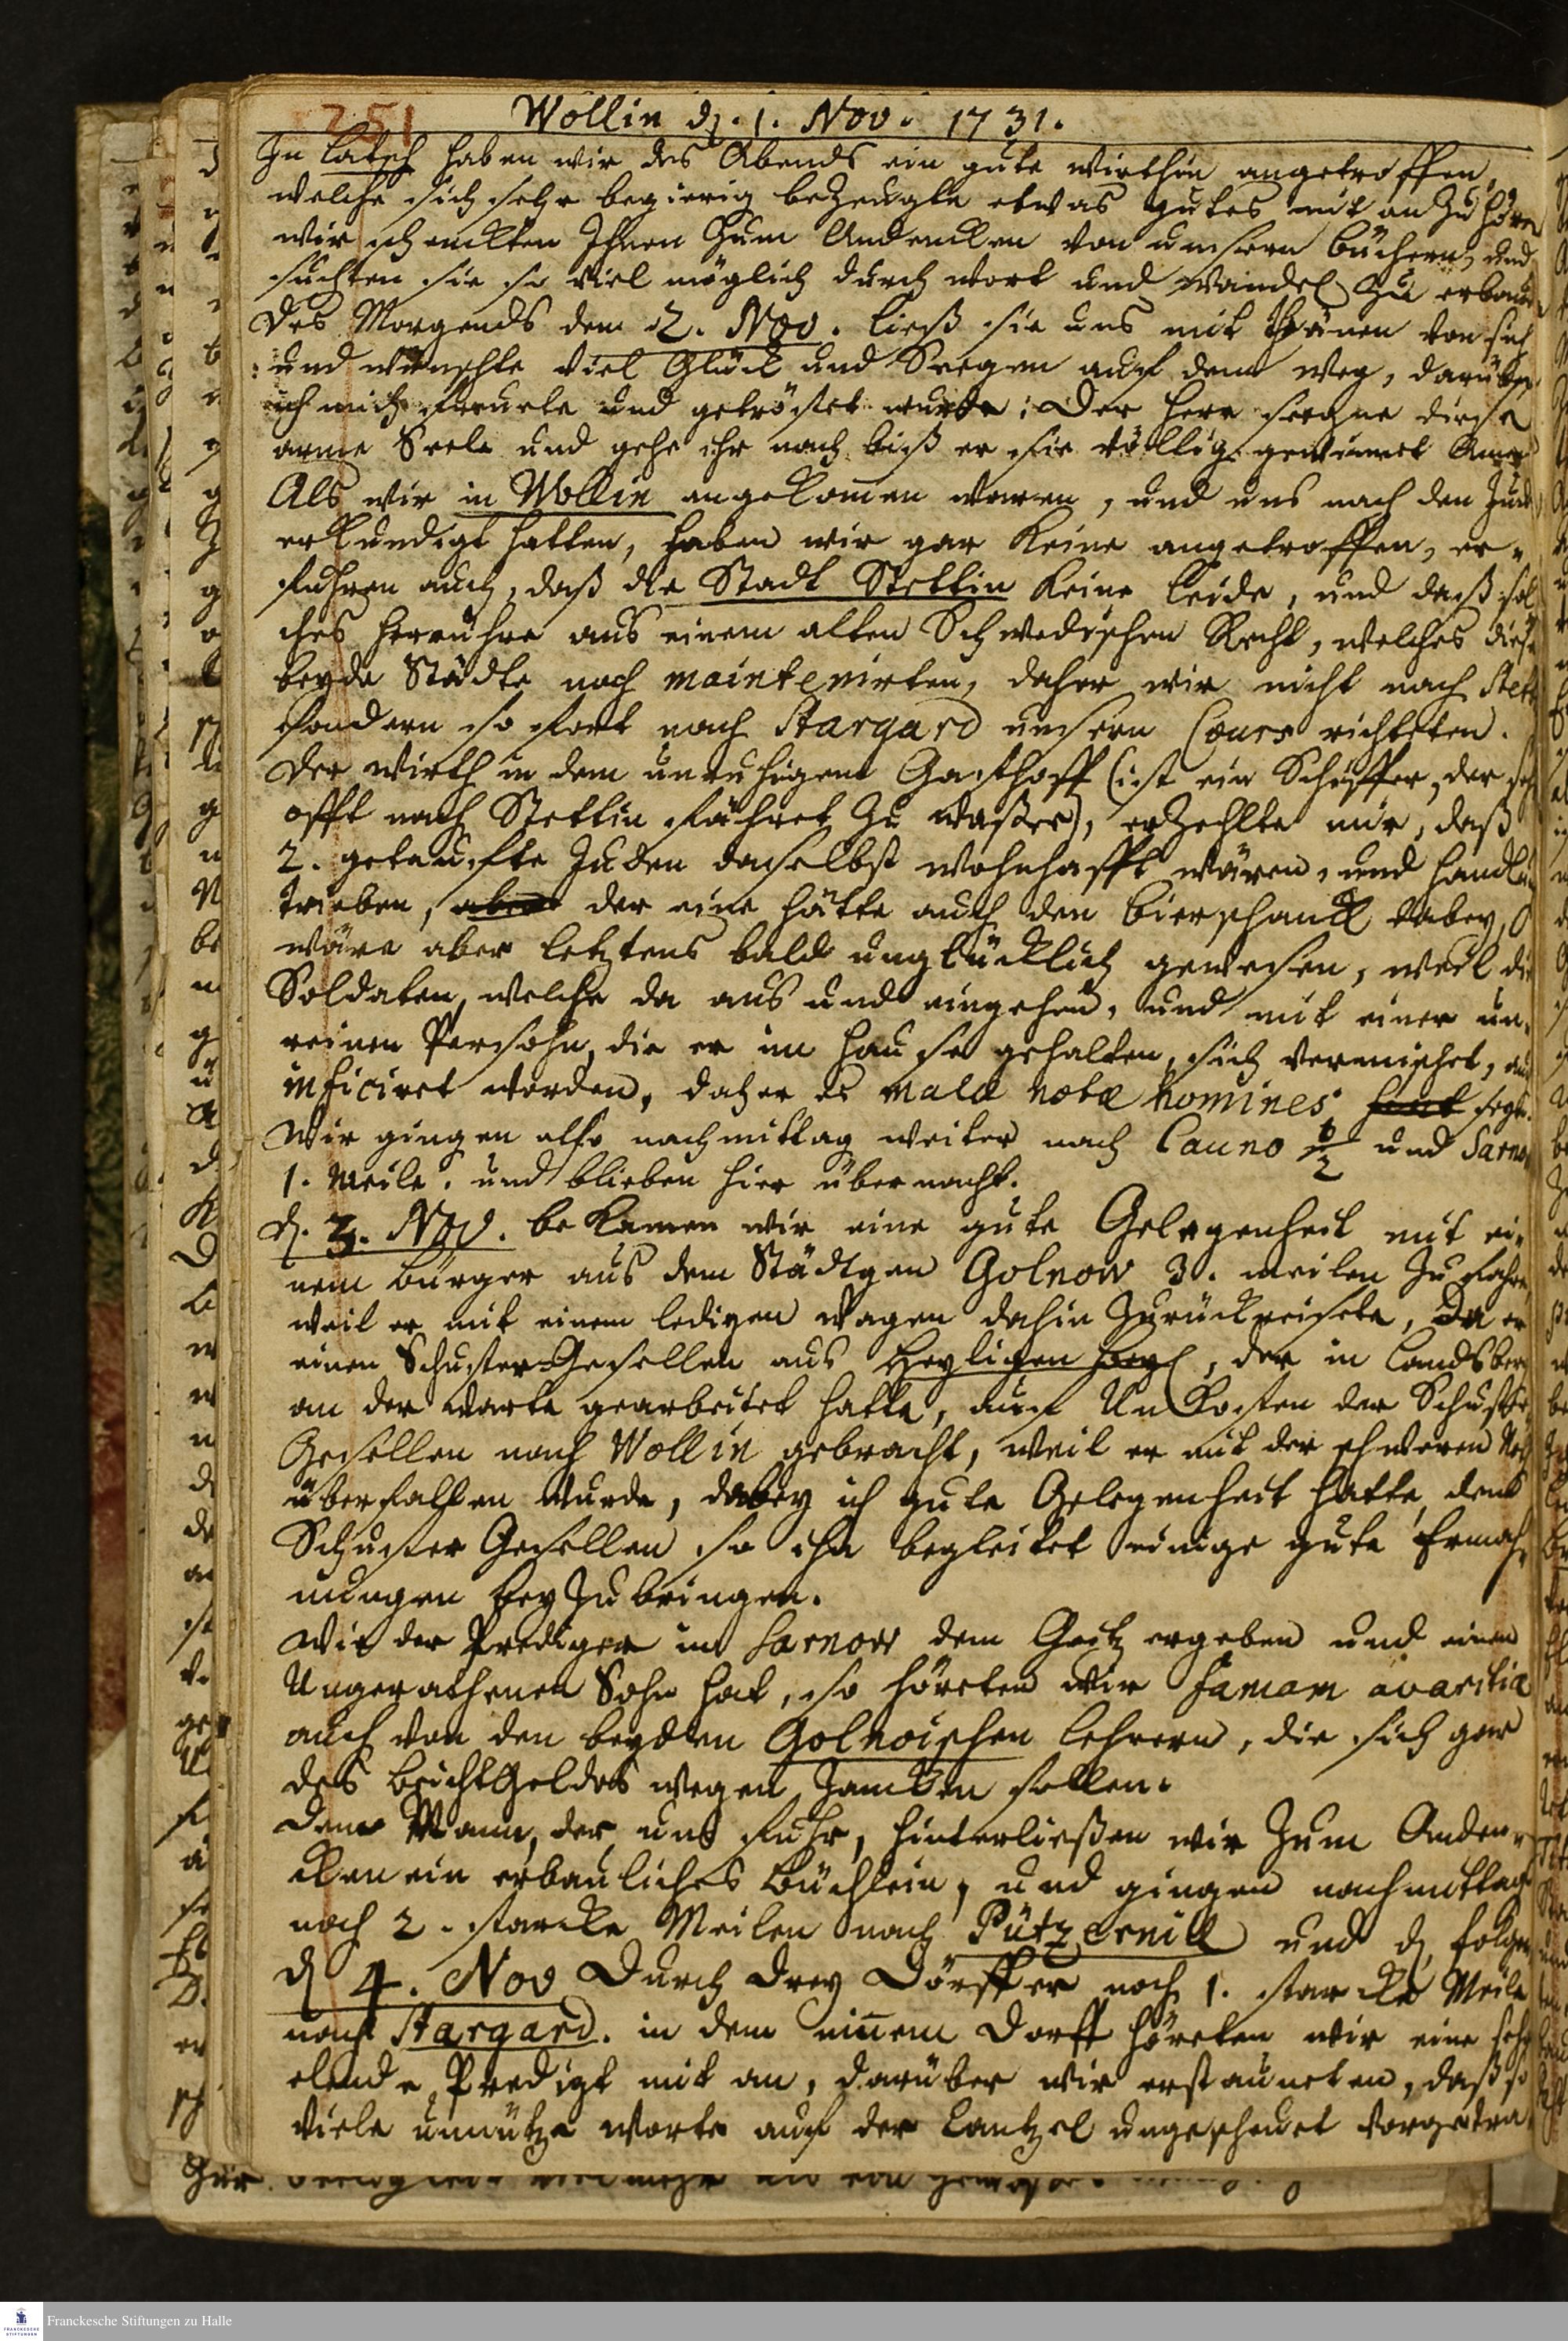 251
Wollin d. 1. Nov. 1731.
In Latsch haben wir des Abends ein gute Wirthin angetroffen,
welche sich sehr begierig bezeugte etwas gutes mit an zu hören
wir schenckten Ihnen zum Andencken von unsern Büchern, und
suchten sie so viel möglich durch wort und Wandel zu erbauen
Des Morgends dem 2. Nov. ließ sie uns mit thränen von sich
und wünschte viel Glück und Seegen auf dem weg, darüber
ich mich freuete und getröstet wurde; Der Herr seegne diese
arme Seele und gehe ihr nach biß er sie völlig gewinnet Amen
Als wir in Wollin angekomen waren, und uns nach den Jud
erkundigt hatten, haben wir gar keine angetroffen, er-
fuhren auch, daß die Stadt Stettin keine leide, und daß sol
ches herrühre aus einem alten Schwedischen Recht, welches diese
beyde Städte noch maintenirten, daher wir nicht nach Stet
sondern so fort nach Stargard unsern Cours richteten.
Der Wirth in dem unruhigen Gasthoff (ist ein Schiffer, der sehr
offt nach Stettin fähret zu waßer), erzehlte mir, daß
2. getauffte Juden daselbst wohnhafft wären, und handlun
trieben, aber der eine hätte auch den Bierschanck dabey,
wäre aber letztens bald unglücklich gewesen, weil die
Soldaten, welche da aus und eingehen, und mit einer un-
reinen Persohn, die er im Hause gehalten, sich vermischet, und
inficiret worden, daher es malæ notæ homines seyn.
Wir gingen also nachmittag weiter nach Cauno 1/2 und Sarnow
1. Meile. und blieben hier übernacht.
d. 3. Nov. bekamen wir eine gute Gelegenheit mit ei-
nem Bürger aus dem Städtgen Golnow 3. meilen zu fahren
weil er mit einem ledigen Wagen dahin zurückreisete, Da er
einen Schuster-Gesellen aus Heyligen Beyl, der in Landsberg
an der Warte gearbeitet hatte, auf Unkosten der Schuster
Gesellen nach Wollin gebracht, weil er mit der schweren Noth
überfallen wurde, dabey ich gute Gelegenheit hatte, dem
Schuster Gesellen so ihn begleitet einige gute Ermah-
nungen beyzubringen.
Wie der Prediger im Sarnow dem Geitz ergeben und einen
Ungerathenen Sohn hat, so höreten wir famam avaritiæ
auch von den beyden Golnoischen Lehrern, die sich gar
des Beicht Geldes wegen Zancken sollen.
Dem Mann, der uns fuhr, hinterließen wir zum Anden-
cken ein erbauliches Büchlein, und gingen nachmittag
noch 2. starcke Meilen nach Pützernill und d folgen
d 4. Nov Durch Drey Dörffer noch 1. starcke Meile
nach Stargard. in dem einem Dorff höreten wir eine sehr
elende Predigt mit an, darüber wir erstauneten, daß so
viele unnütze Worte auf der Cantzel ungescheuet vorgetra
Franckesche Stiftungen zu Halle